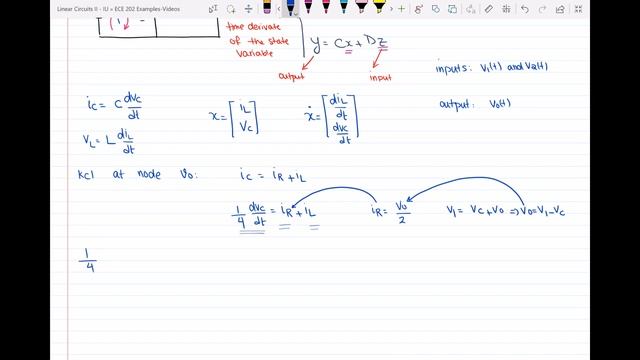 Linear Circuits II - IU < ECE 202 Examples-Videos
time derivate
of the state
variable
y = Cx + Dz
output
input
inputs: V1(t) and V2(t)
output: Vo(t)
ic = C dVc/dt
VL = L diL/dt
x = [iL Vc]
ẋ = [diL/dt dVc/dt]
KCL at node Vo: ic = iR + iL
1/4 dVc/dt = iR + iL
iR = Vo/2
V1 = Vc + Vo => Vo = V1 - Vc
1/4